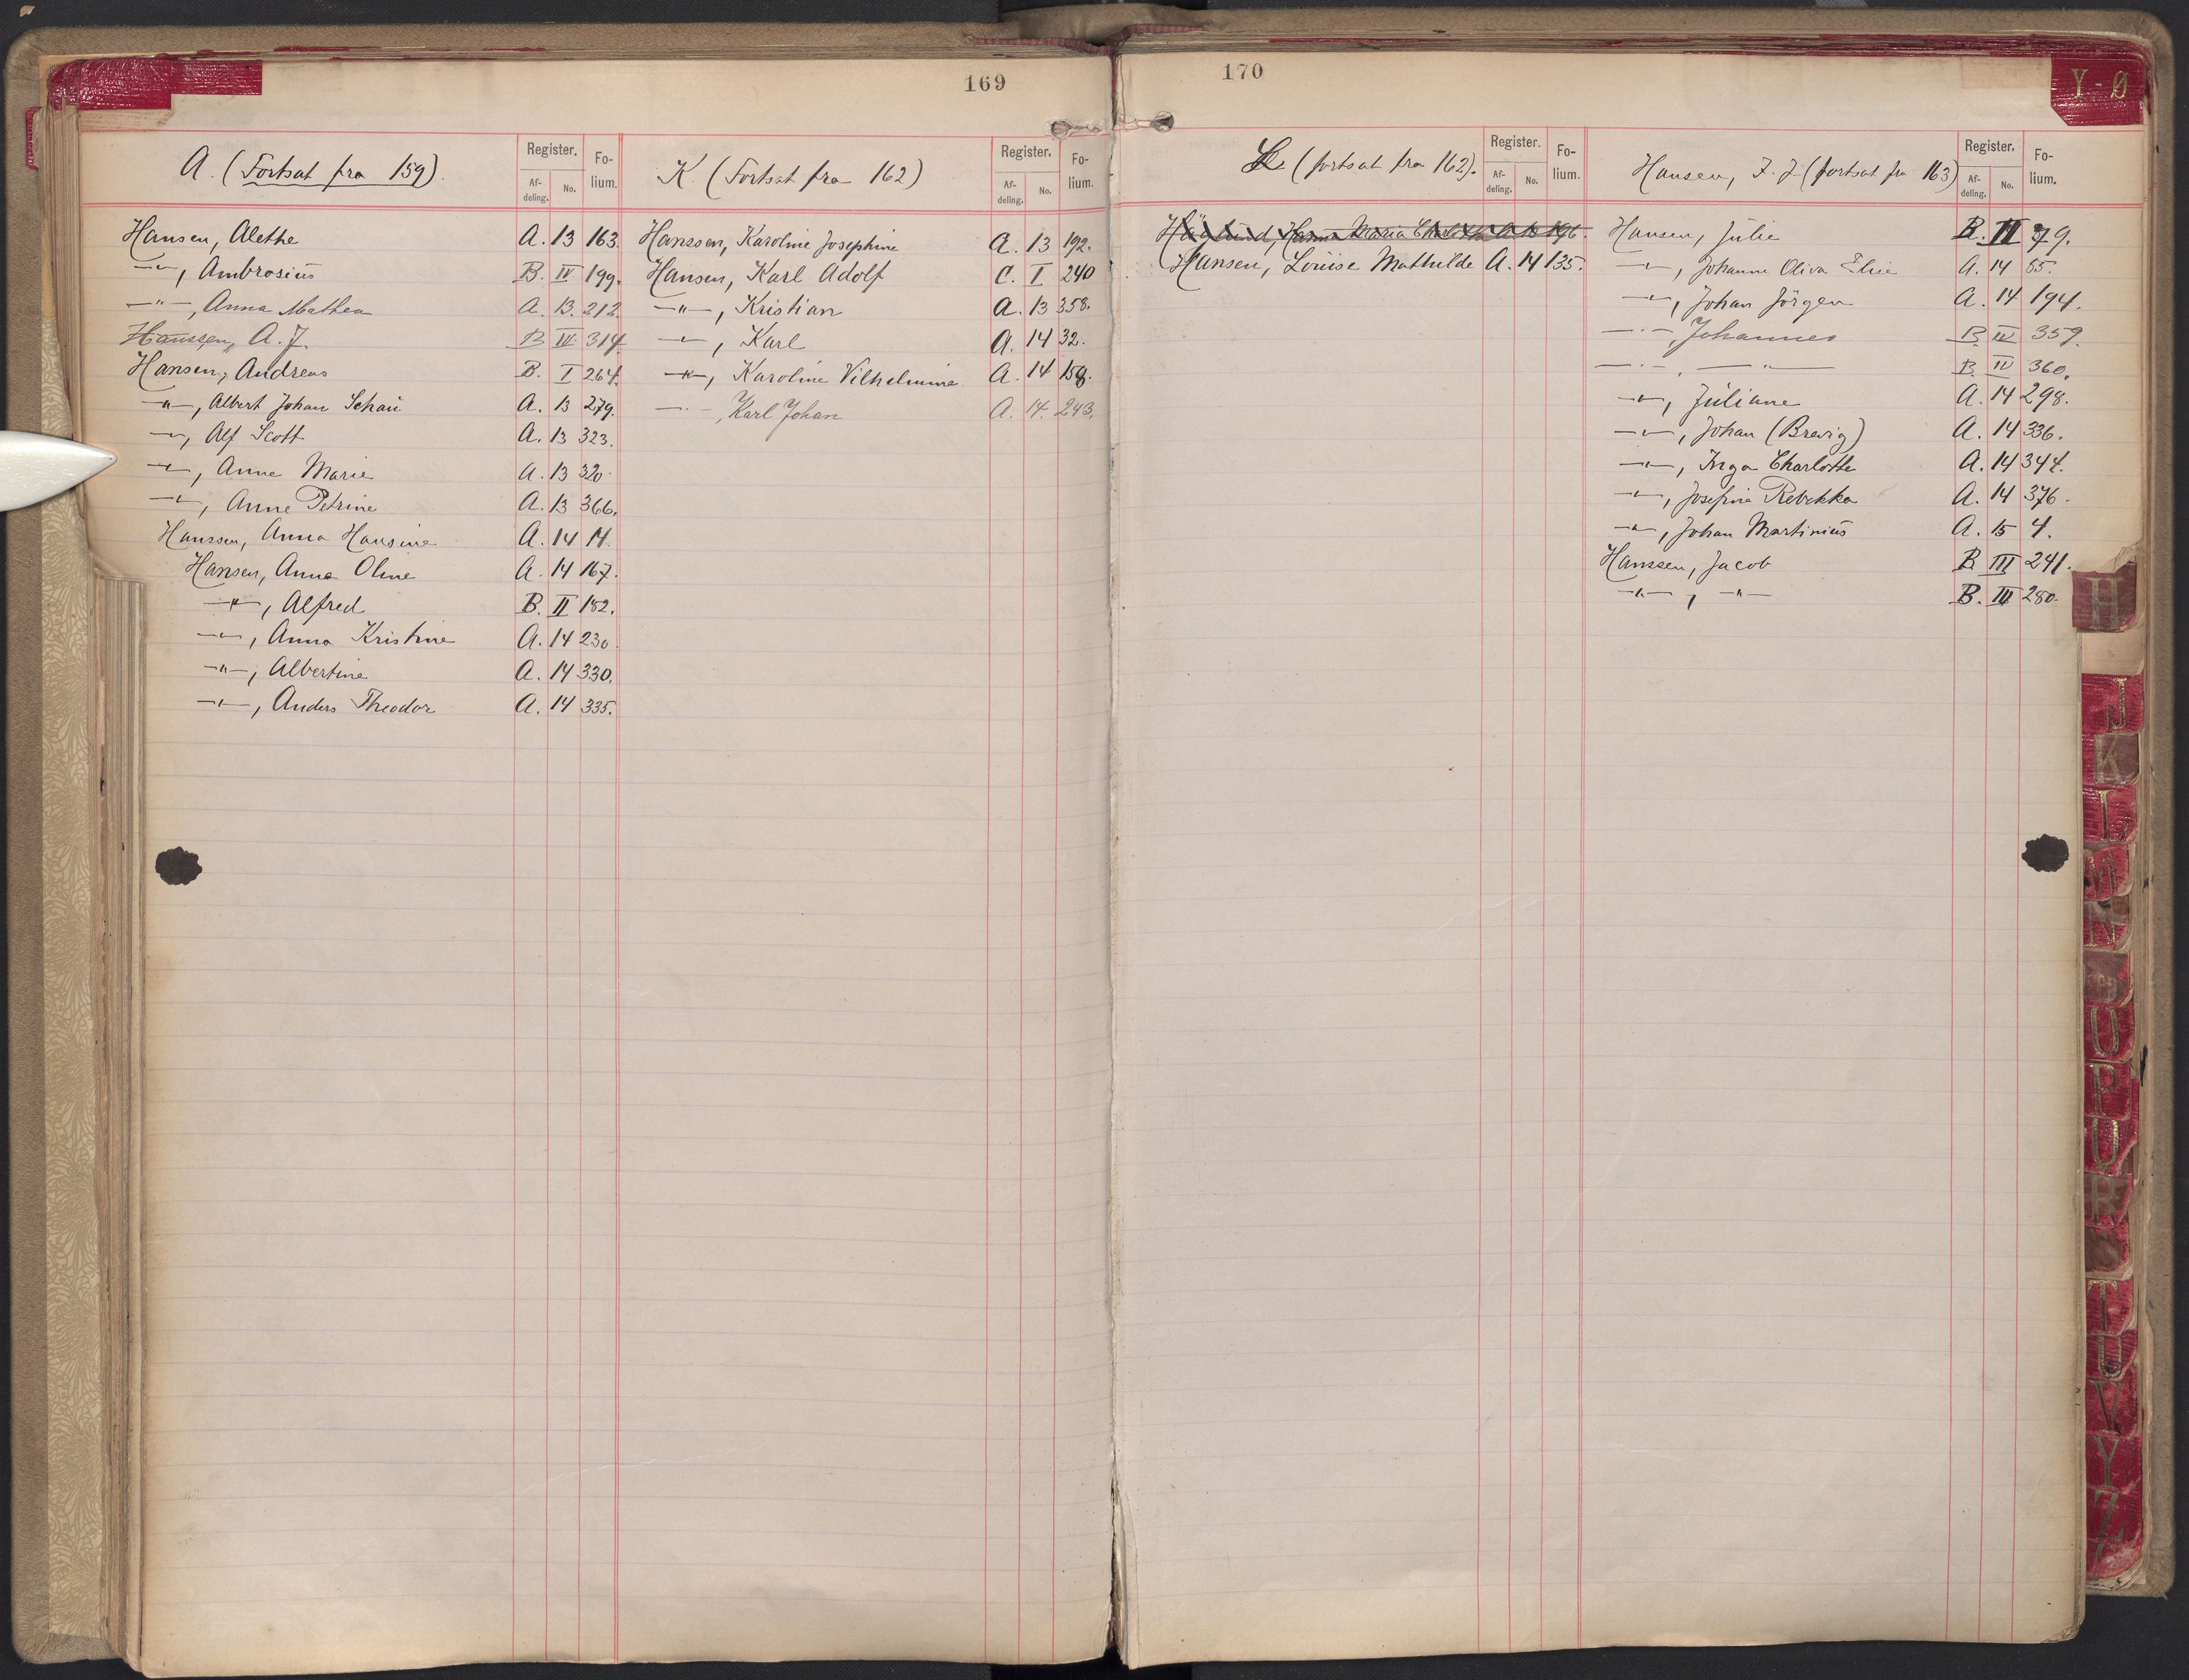 169
A. (Fortsat fra 159).
Register.
Fo-
lium.
Af-
deling.
No.
Hansen, Alethe A. 13 163.
—"—, Ambrosius B. IV 199.
—"—, Anna Mathea A. 13. 212.
Hanssen, A. J. B III 314
Hansen, Andreas B. I 264.
—"—, Albert Johan Schau A. 13 279.
—"—, Alf Scott A. 13 323.
—"—, Anne Marie A. 13 320.
—"—, Anne Petrine A. 13 366.
Hanssen, Anna Hansine A. 14 14.
Hansen, Anna Oline A. 14 167.
—"—, Alfred B. II 182.
—"—, Anna Kristine A. 14 230
—"—, Albertine A. 14 330.
—"—, Anders Theodor A. 14 335.
K. (Fortsat fra 162)
Register.
Fo-
lium.
Af-
deling.
No.
Hanssen, Karoline Josephine A. 13 192.
Hansen, Karl Adolf C. I 240
—"—, Kristian A. 13 358.
—"—, Karl A. 14 32.
—"—, Karoline Vilhelmine A. 14 159.
—"—, Karl Johan A. 14. 243.
170
L (fortsat fra 162).
Register.
Fo-
lium.
Af-
deling.
No.
Maria 196.
Hansen, Louise Mathilde A. 14 135.
Hansen, I. J (fortsat fra 163)
Register.
Fo-
lium.
Af-
deling.
No.
Hansen, Julie B. II 79.
—"—, Johanne Oliva Elise A. 14 65.
—"—, Johan Jörgen A. 14 194.
—"—, Johannes B IV 359.
—"—, —"— B. IV 360.
—"—, Juliane A. 14 298.
—"—, Johan (Brevig) A. 14 336.
—"—, Inga Charlotte A. 14 344.
—"—, Josefine Rebekka A. 14 376.
—"—, Johan Martinius A. 15 4.
Hanssen, Jacob B III 241.
—"—, —"— B. III 280.
Y-Ø
H
J
K
L
M
N
O
P
R
T
U
V
Y
Z